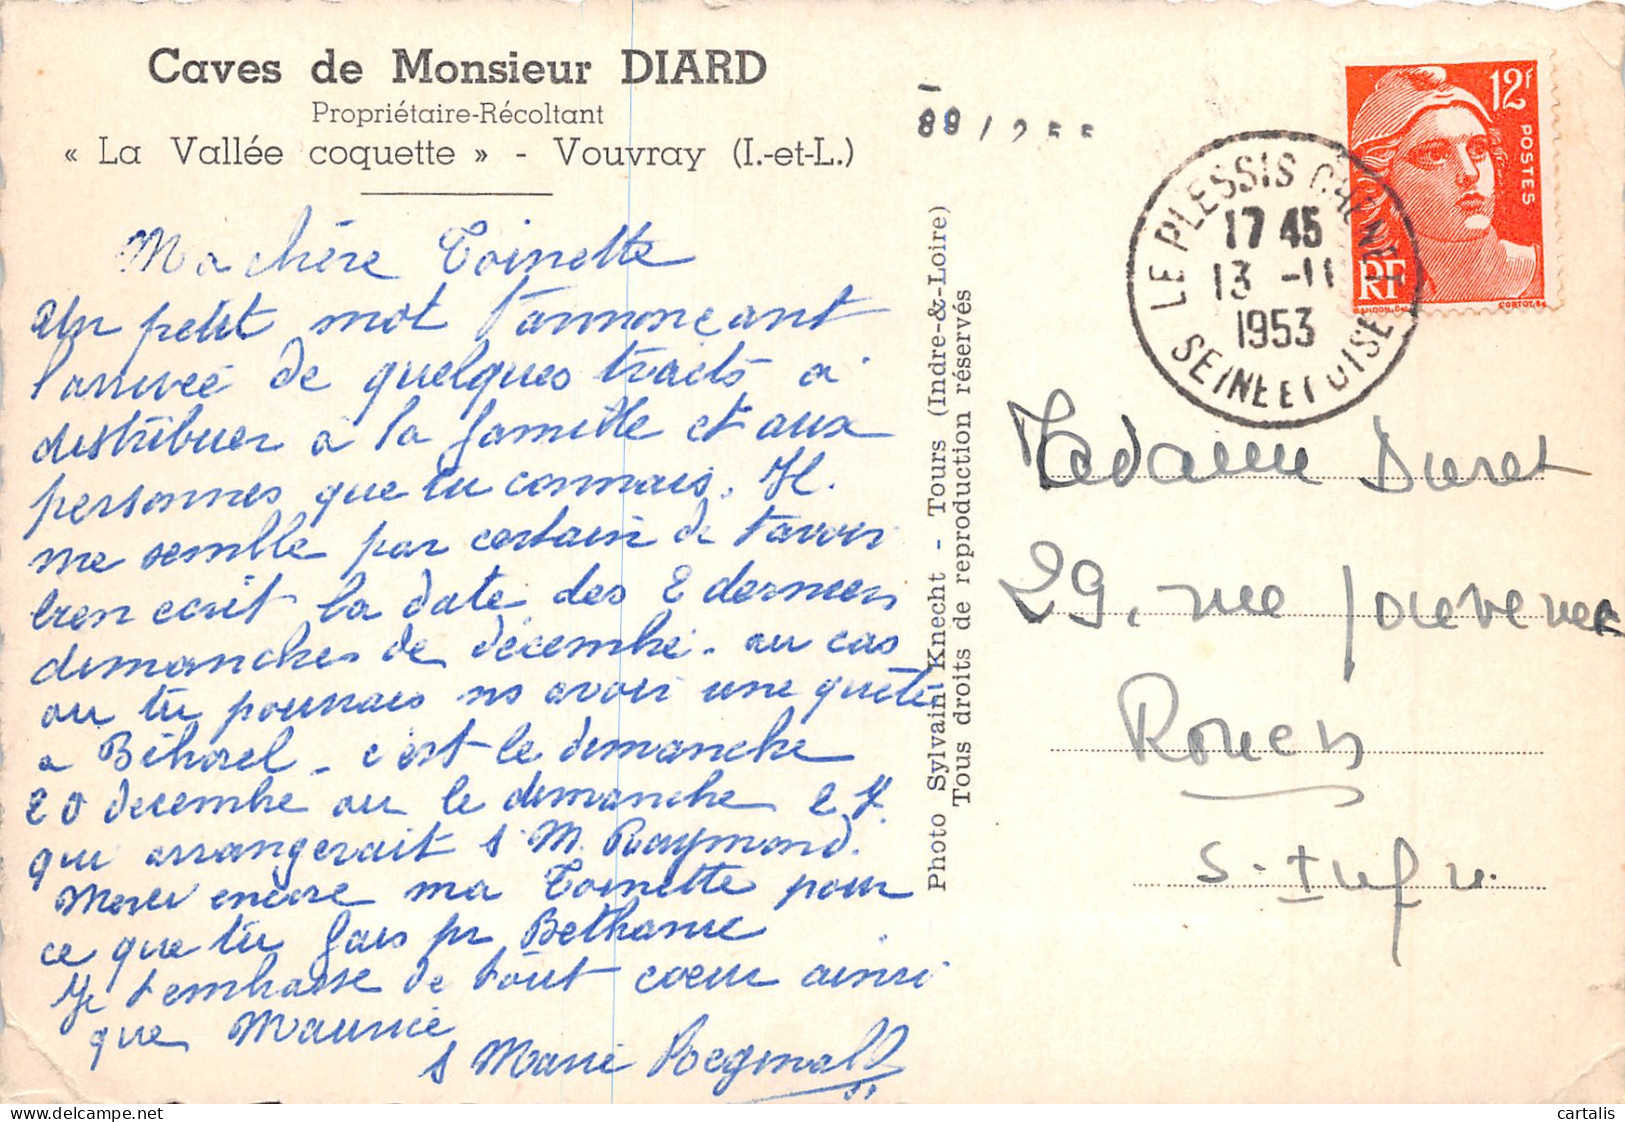 Caves de Monsieur DIARD
Propriétaire-Récoltant
« La Vallée coquette » - Vouvray (I.-et-L.)
Ma chère Toinette
Un petit mot t'annonçant
l'arrivée de quelques tracts à
distribuer à la famille et aux
personnes que tu connais. Il
me semble pas certain de t'avoir
bien écrit la date des 2 derniers
dimanches de décembre. au cas
ou tu pourrais ns avoir une quête
a Bihorel - c'est le dimanche
20 decembre ou le dimanche 27
qui arrangerait s M. Raymond.
Merci encore ma Toinette pour
ce que tu fais pr Bethanie
Je t'embrasse de tout coeur ainsi
que Maurice
s Marie
Photo Sylvain Knecht - Tours (Indre-&-Loire)
Tous droits de reproduction réservés
12F
POSTES
RF
LE PLESSIS CHENET
17 45
13 -11
1953
SEINE ET OISE
Madame Duret
29, rue Jouvenet
Rouen
S. Infre.
cartalis